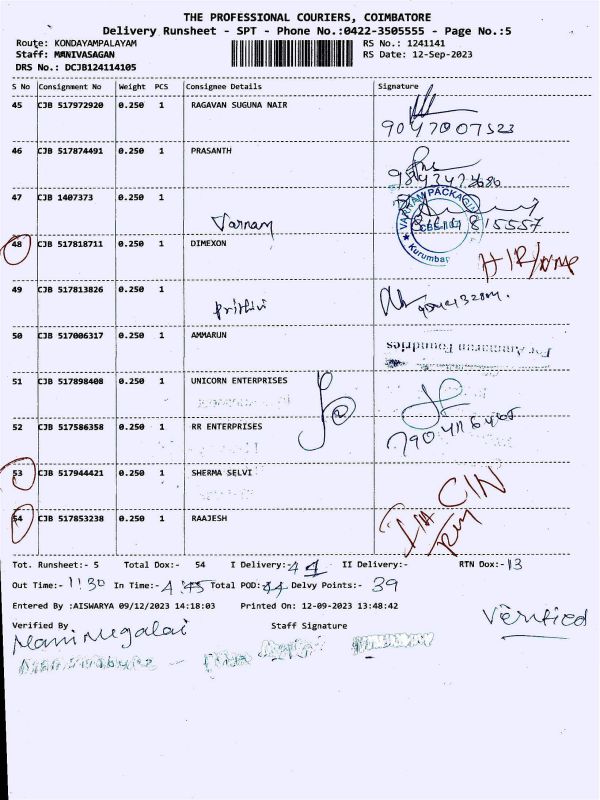 THE PROFESSIONAL COURIERS, COIMBATORE
Delivery Runsheet - SPT - Phone No.:0422-3505555 - Page No.:5
Route: KONDAYAMPALAYAM RS No.: 1241141
Staff: MANIVASAGAN RS Date: 12-Sep-2023
DRS No.: DCJB124114105
S No Consignment No Weight PCS Consignee Details Signature
45 CJB 517972920 0.250 1 RAGAVAN SUGUNA NAIR
9047007523
46 CJB 517874491 0.250 1 PRASANTH
47 CJB 1407373 0.250 1
Varnam
VARNAM PACKAGING
Kurumbar
48 CJB 517818711 0.250 1 DIMEXON
49 CJB 517813826 0.250 1
Prithivi
50 CJB 517006317 0.250 1 AMMARUN
For Ammarun Foundries
51 CJB 517898408 0.250 1 UNICORN ENTERPRISES
52 CJB 517586358 0.250 1 RR ENTERPRISES
53 CJB 517944421 0.250 1 SHERMA SELVI
54 CJB 517853238 0.250 1 RAAJESH
Tot. Runsheet:- 5 Total Dox:- 54 I Delivery:- 44 II Delivery:- RTN Dox:- 13
Out Time:- 11:30 In Time:- 4:45 Total POD:- 44 Delvy Points:- 39
Entered By :AISWARYA 09/12/2023 14:18:03 Printed On: 12-09-2023 13:48:42
Verified By Staff Signature Verified
Manimegalai